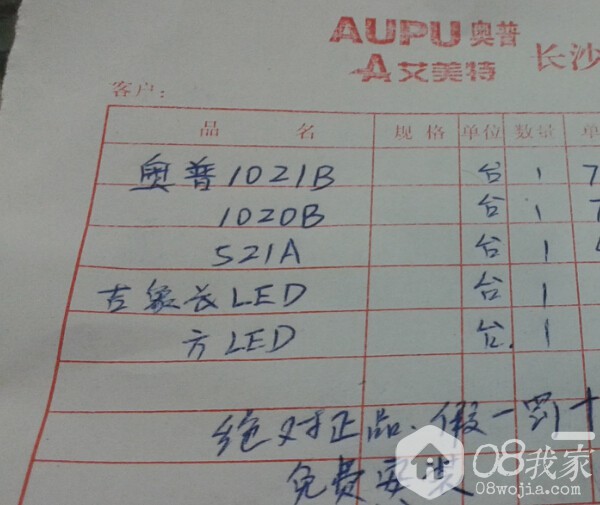 AUPU奥普
艾美特 长沙
客户：
品 名 规格 单位 数量 单
奥普1021B 台 1 7
1020B 台 1 7
521A 台 1
吉象长LED 台 1
方LED 台. 1
绝对正品.假一罚十
免费安装
08我家
08wojia.com